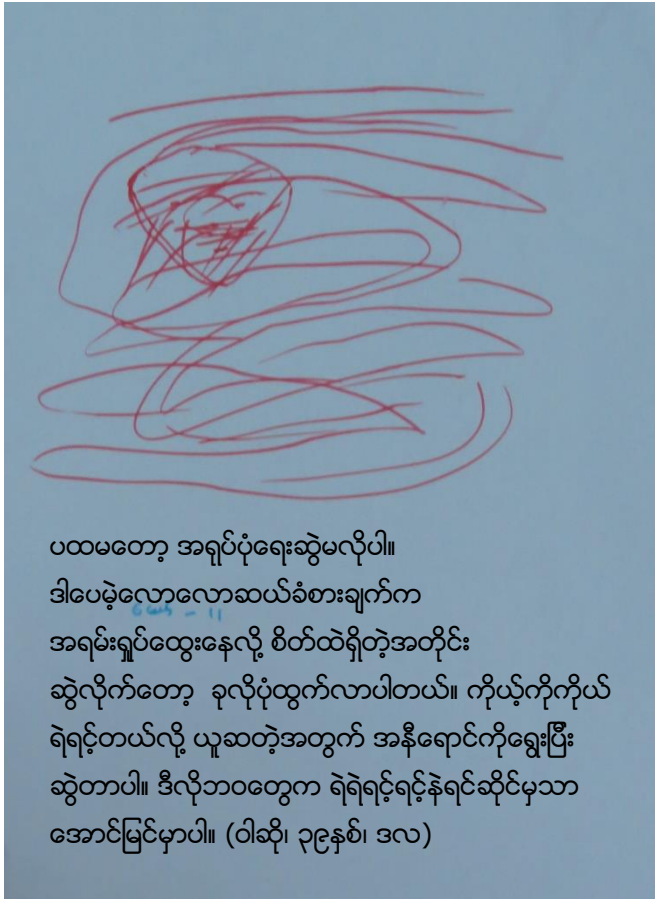 ပထမတော့ အရုပ်ပုံရေးဆွဲမလိုပါ။
ဒါပေမဲ့လောလောဆယ်ခံစားချက်က
အရမ်းရှုပ်ထွေးနေလို့ စိတ်ထဲရှိတဲ့အတိုင်း
ဆွဲလိုက်တော့ ခုလိုပုံထွက်လာပါတယ်။ ကိုယ့်ကိုကိုယ်
ရဲရင့်တယ်လို့ ယူဆတဲ့အတွက် အနီရောင်ကိုရွေးပြီး
ဆွဲတာပါ။ ဒီလိုဘဝတွေက ရဲရဲရင့်ရင့်နဲ့ရင်ဆိုင်မှသာ
အောင်မြင်မှာပါ။ (ဝါဆို၊ ၃၉နှစ်၊ ဒလ)